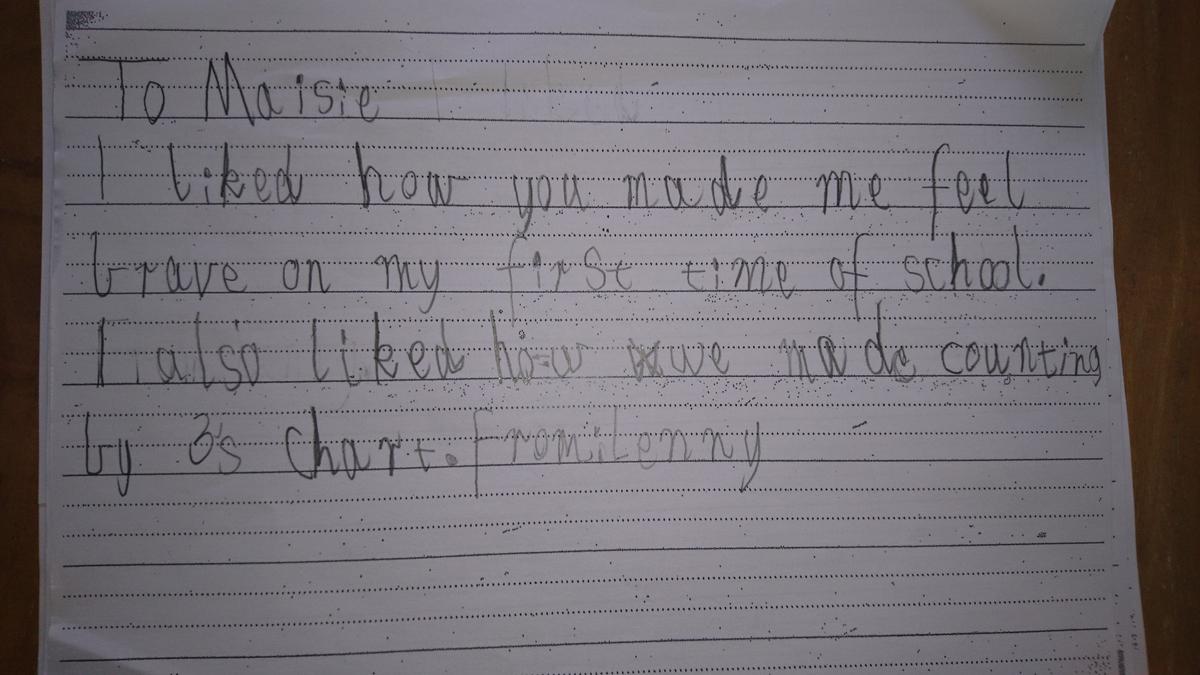 To Maisie
I liked how you made me feel
brave on my first time of school.
I also liked how we made counting
by 3's Chart. From: Lenny